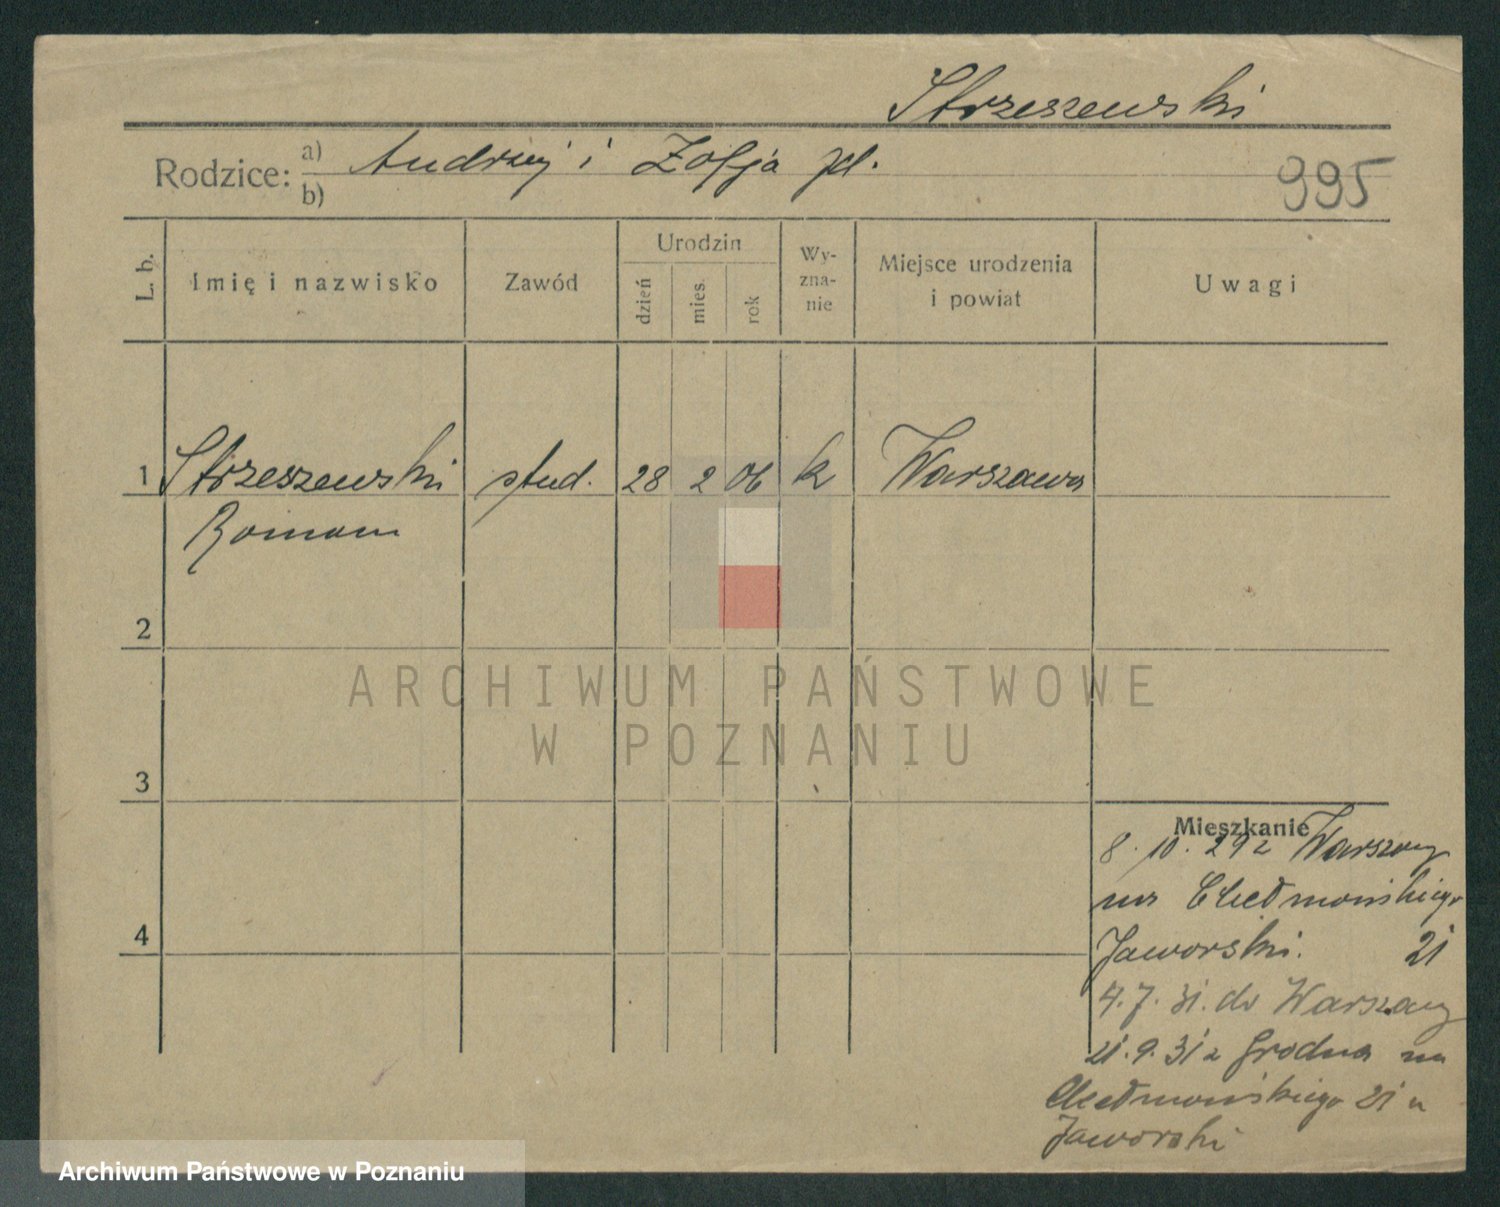 Strzeszewski
Rodzice: a) Andrzej i Zofja
b)
995
L. b.
Imię i nazwisko
Zawód
Urodzin
dzień
mies.
rok
Wy-
zna-
nie
Miejsce urodzenia
i powiat
Uwagi
1 Strzeszewski stud. 28 2 06 k Warszawa
Roman
2
ARCHIWUM PAŃSTWOWE
W POZNANIU
3
Mieszkanie
8. 10. 29 z Warszawy
na Chełmońskiego
Jaworski. 21
4
7. 31. do Warszawy
21. 9. 31 z Grodna na
Chełmońskiego 21 u
Jaworski
Archiwum Państwowe w Poznaniu